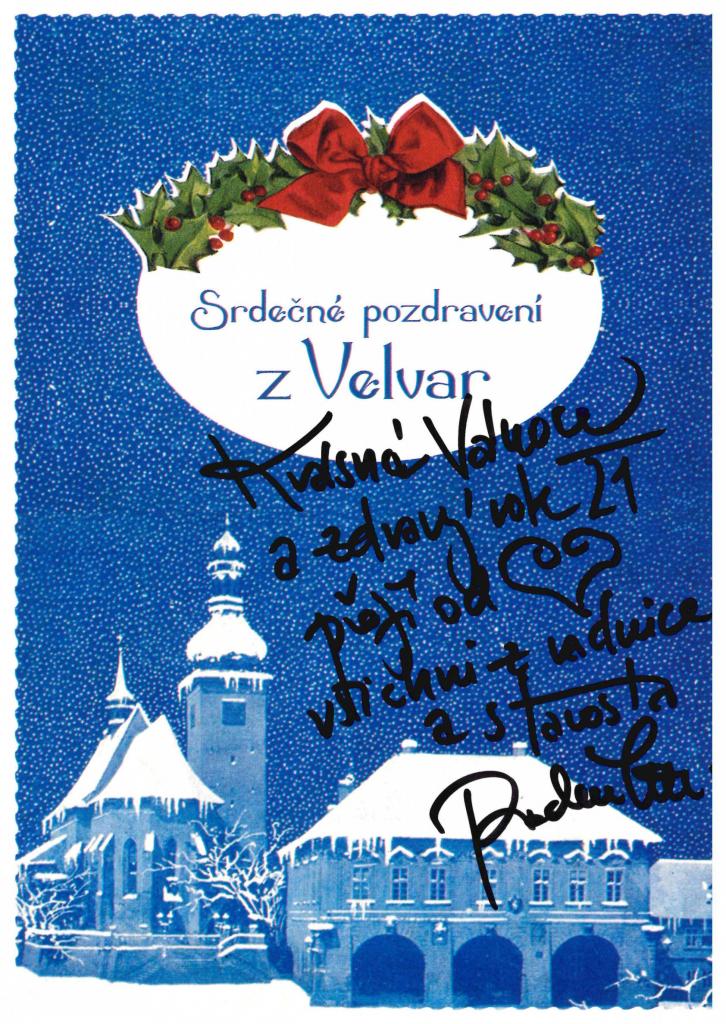 Srdečné pozdravení
z Velvar
Krásné Vánoce
a zdravý rok 21
přejí od ♡
všichni z radnice
a starosta
Radim